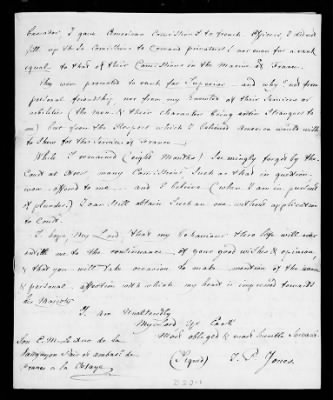 I gave American Commissions to French Officers, I did not
fill up those Commissions to Command privateers! nor even for a rank
equal to that of their Commissions in the Marine of France.
They were promoted to rank far Superior and why? not from
personal friendship nor from my knowledge of their Services or
abilities (the men & their characters being entire Strangers to
me) but from the Respect which I believed America would wish
to show for the Services of France.
While I remained (eight Months) Seemingly forgot by the
Court at Brest, many Commissions Such as that in question
were offered to me and I believe (when I am in pursuit
of plunder) I can Still obtain Such an one without application
to Court.
I hope, My Lord that my behaviour thro life will ever
entitle me to the continuance of your good wishes & opinion,
& that you will take occasion to make mention of the warm
& personal affection with which my heart is impressed towards
his Majesty
I am Unalterably
My Lord
Most obliged & most humble Servant
(Signed) J. P. Jones.
Duc de la
Vauguyon
France a la Haye